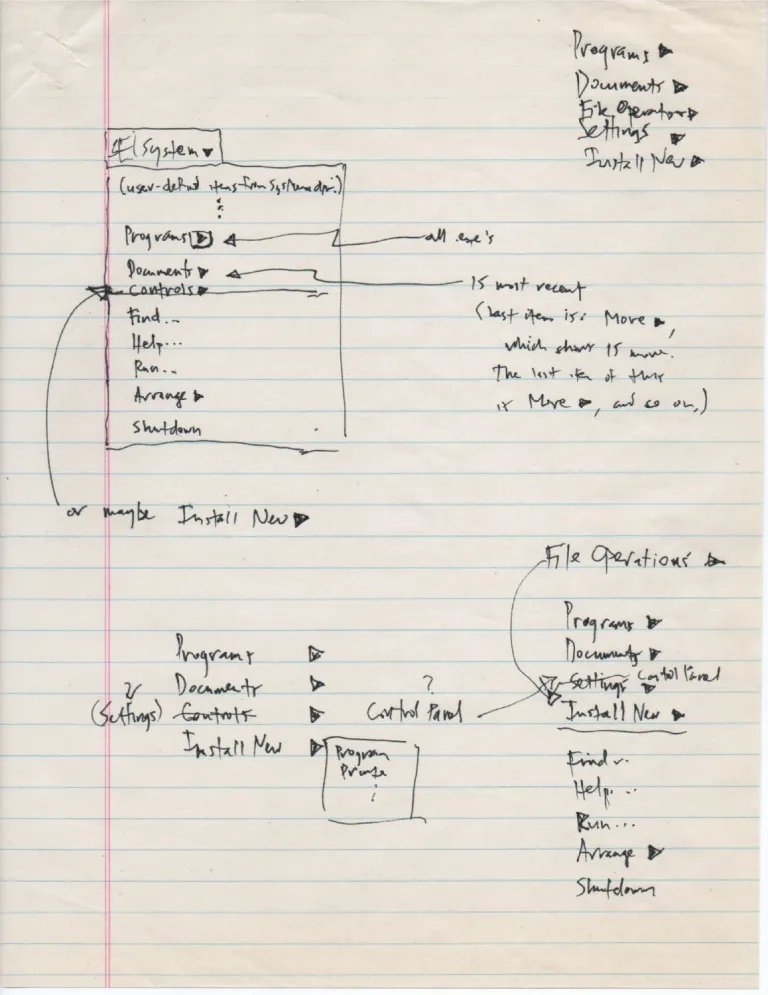 Programs ▶
Documents ▶
File Operations ▶
Settings ▶
Install New ▶
System ▾
(user-defined items from System dir.)
Programs ▶
all .exe's
Documents ▶
15 most recent
(last item is: More ▶,
which shows 15 more.
The last item of this
is More ▶, and so on.)
Controls ▶
Find...
Help...
Run...
Arrange ▶
Shutdown
or maybe Install New ▶
File Operations ▶
Programs ▶
Documents ▶
Settings ▶ Control Panel
Install New ▶
Find...
Help...
Run...
Arrange ▶
Shutdown
Programs ▶
Documents ▶
?
(Settings) Controls ▶
?
Control Panel
Install New ▶
Program
Printer
⋮